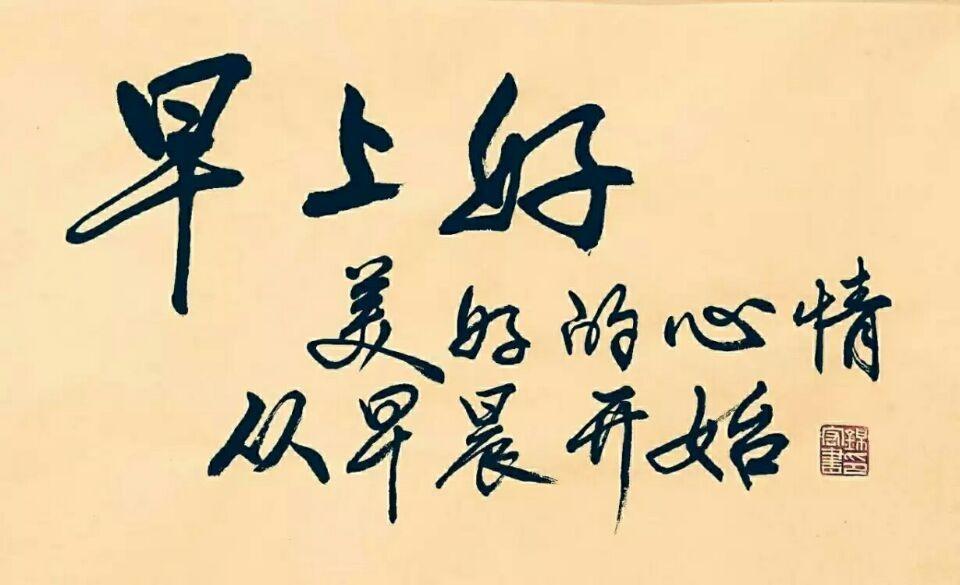 早上好
美好的心情
从早晨开始